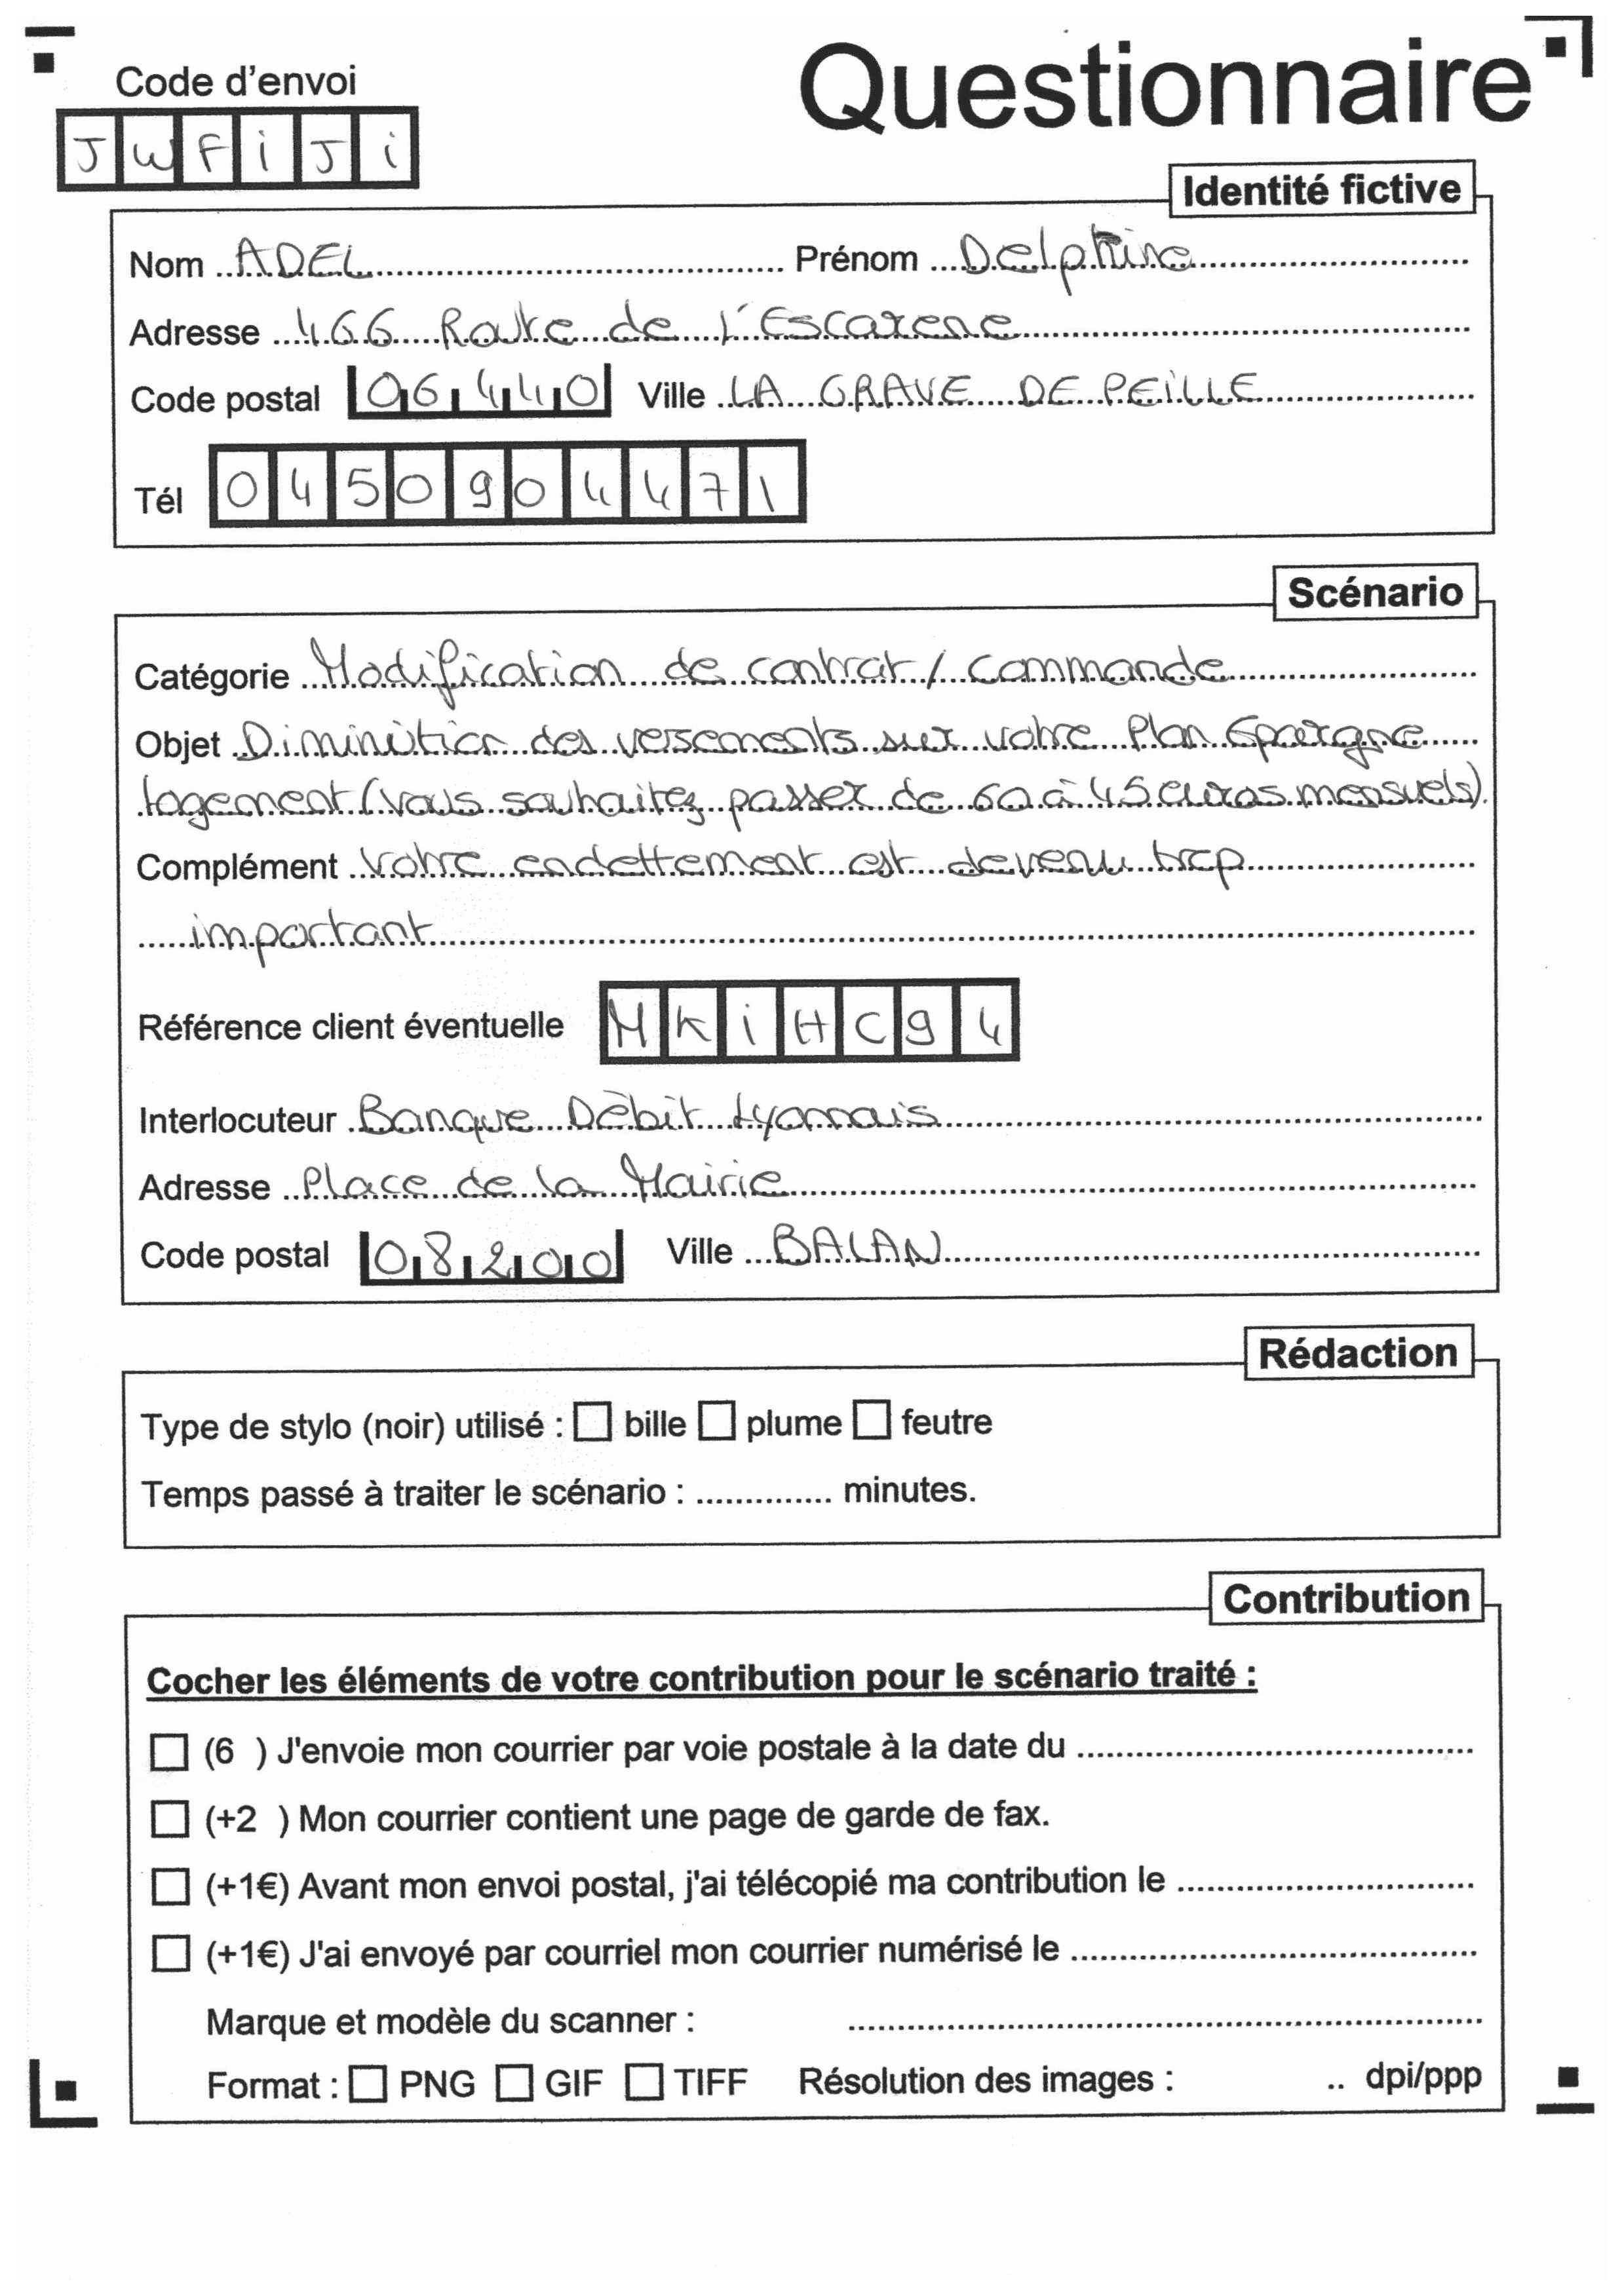 Questionnaire
Code d'envoi
JWFiJi
Identité fictive
Nom ADEL Prénom Delphine
Adresse 466 Route de L'Escarene
Code postal 06440 Ville LA GRAVE DE PEiLLE
Tél 0450904471
Scénario
Catégorie Modification de contrat / Commande
Objet Diminution des versements sur votre Plan Epargne
logement (vous souhaitez passer de 60 à 45 euros mensuels).
Complément Votre endettement est devenu trop
important
Référence client éventuelle MKiHC94
Interlocuteur Banque Débit Lyonnais
Adresse Place de la Mairie
Code postal 08200 Ville BALAN
Rédaction
Type de stylo (noir) utilisé : bille plume feutre
Temps passé à traiter le scénario : .............. minutes.
Contribution
Cocher les éléments de votre contribution pour le scénario traité :
(6 ) J'envoie mon courrier par voie postale à la date du ........................................
(+2 ) Mon courrier contient une page de garde de fax.
(+1€) Avant mon envoi postal, j'ai télécopié ma contribution le ..............................
(+1€) J'ai envoyé par courriel mon courrier numérisé le .........................................
Marque et modèle du scanner : ................................................................
Format : PNG GIF TIFF Résolution des images : .. dpi/ppp